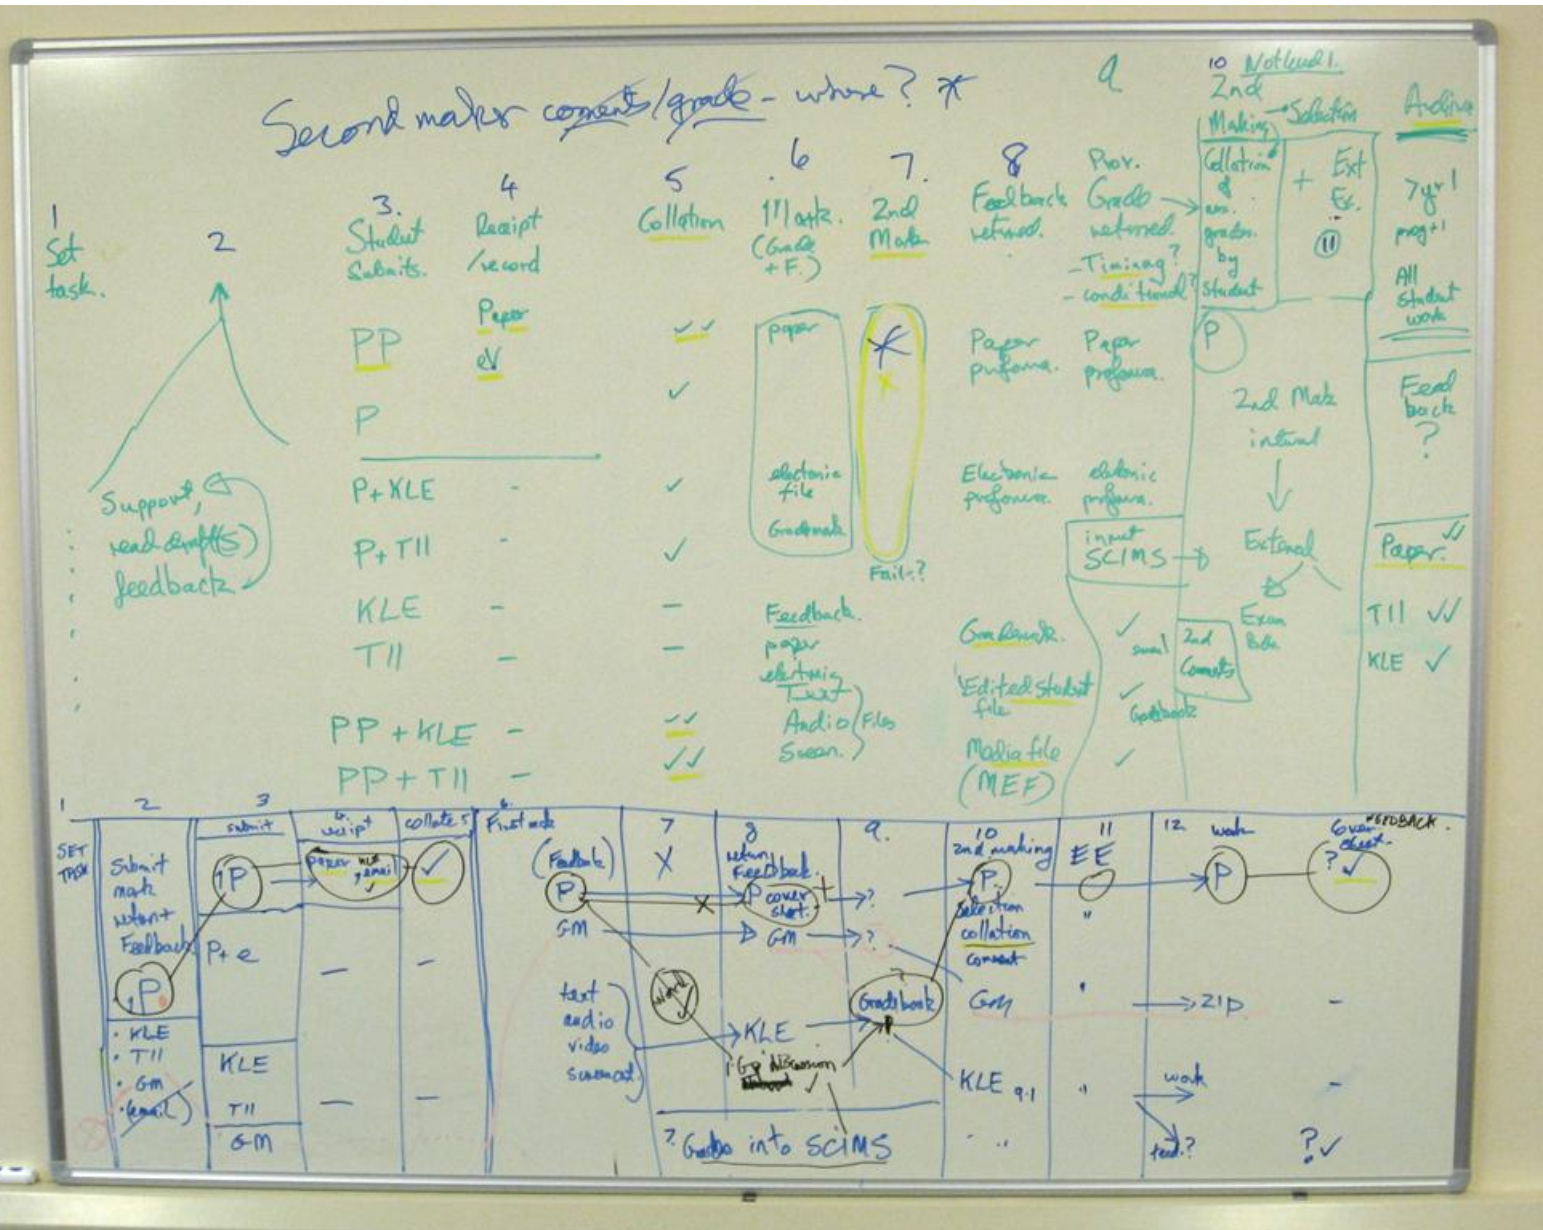 Second maker coments/grade - where? *
1
Set
task.
2
Support,
read draft(s)
feedback
3.
Student
Submits.
PP
P
P + KLE
P + TII
KLE
TII
PP + KLE
PP + TII
4
Receipt
/record
Paper
eV
-
-
-
-
-
-
5
Collation
✓✓
✓
✓
✓
-
-
✓✓
✓✓
6
1 Mark.
(Grade
+ F.)
paper
electonic
file
Grademark
Feedback.
paper
electronic
Text
Audio
Screen.
Files
7.
2nd
Mark
*
x
Fail-?
8
Feedback
returned.
Paper
proforma.
Electronic
proforma.
Grademark.
Edited Student
file
Media file
(MEF)
9
Prov.
Grade
returned.
- Timinag?
- conditional?
Paper
proforma.
eletronic
proforma.
input
SCIMS
✓
email
✓
Gradebook
✓
10 Not level 1.
2nd
Making
Selection
Collation
of
grades
by
Student
+ Ext
Ex.
11
P
2nd Mark
internal
External
Exam
2nd
Comments
Archive
7 yr 1
prog + 1
All
student
work
Feed
back
?
Paper. ✓✓
TII ✓✓
KLE ✓
1
SET
TASK
2
Submit
mark
return +
Feedback
1P
• KLE
• TII
• GM
• (email)
3
submit
1P
P + e
KLE
TII
GM
4.
receipt
paper KLE
, email
✓
-
-
collate 5
✓
-
-
6.
First mark
(Feedback)
P
GM
text
audio
video
screencast.
7
X
X
work
✓
8
return
Feedback.
P cover
sheet.
+
GM
KLE
1. Gp discussion
✓
? Grades into SCIMS
9.
?
?
?
Gradebook
P
10
2nd making
P
Selection
collation
comment
GM
KLE 9.1
" "
11
EE
"
"
"
12.
work
P
ZIP
work
feed.?
FEEDBACK.
Cover
sheet.
? ✓
-
-
? ✓